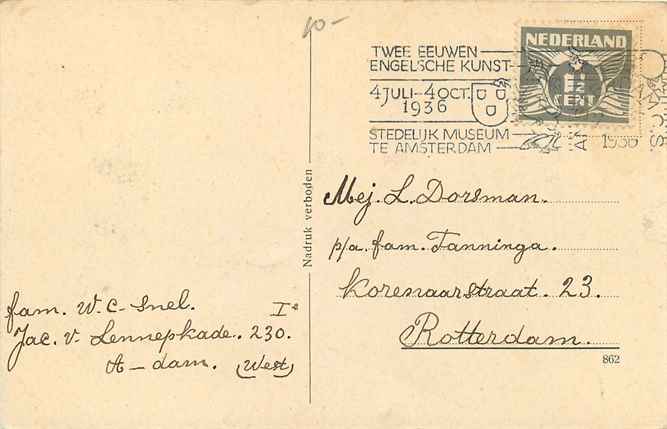 10-
TWEE EEUWEN
ENGELSCHE KUNST
4 JULI-4 OCT.
1936
STEDELIJK MUSEUM
TE AMSTERDAM
NEDERLAND
1½
CENT
1936
Nadruk verboden
Mej. L. Dorsman.
p/a. fam. Tanninga.
Korenaarstraat. 23.
Rotterdam.
862
fam. W. C. Snel. Iᵉ
Jac. v. Lennepkade. 230.
A-dam. (West)